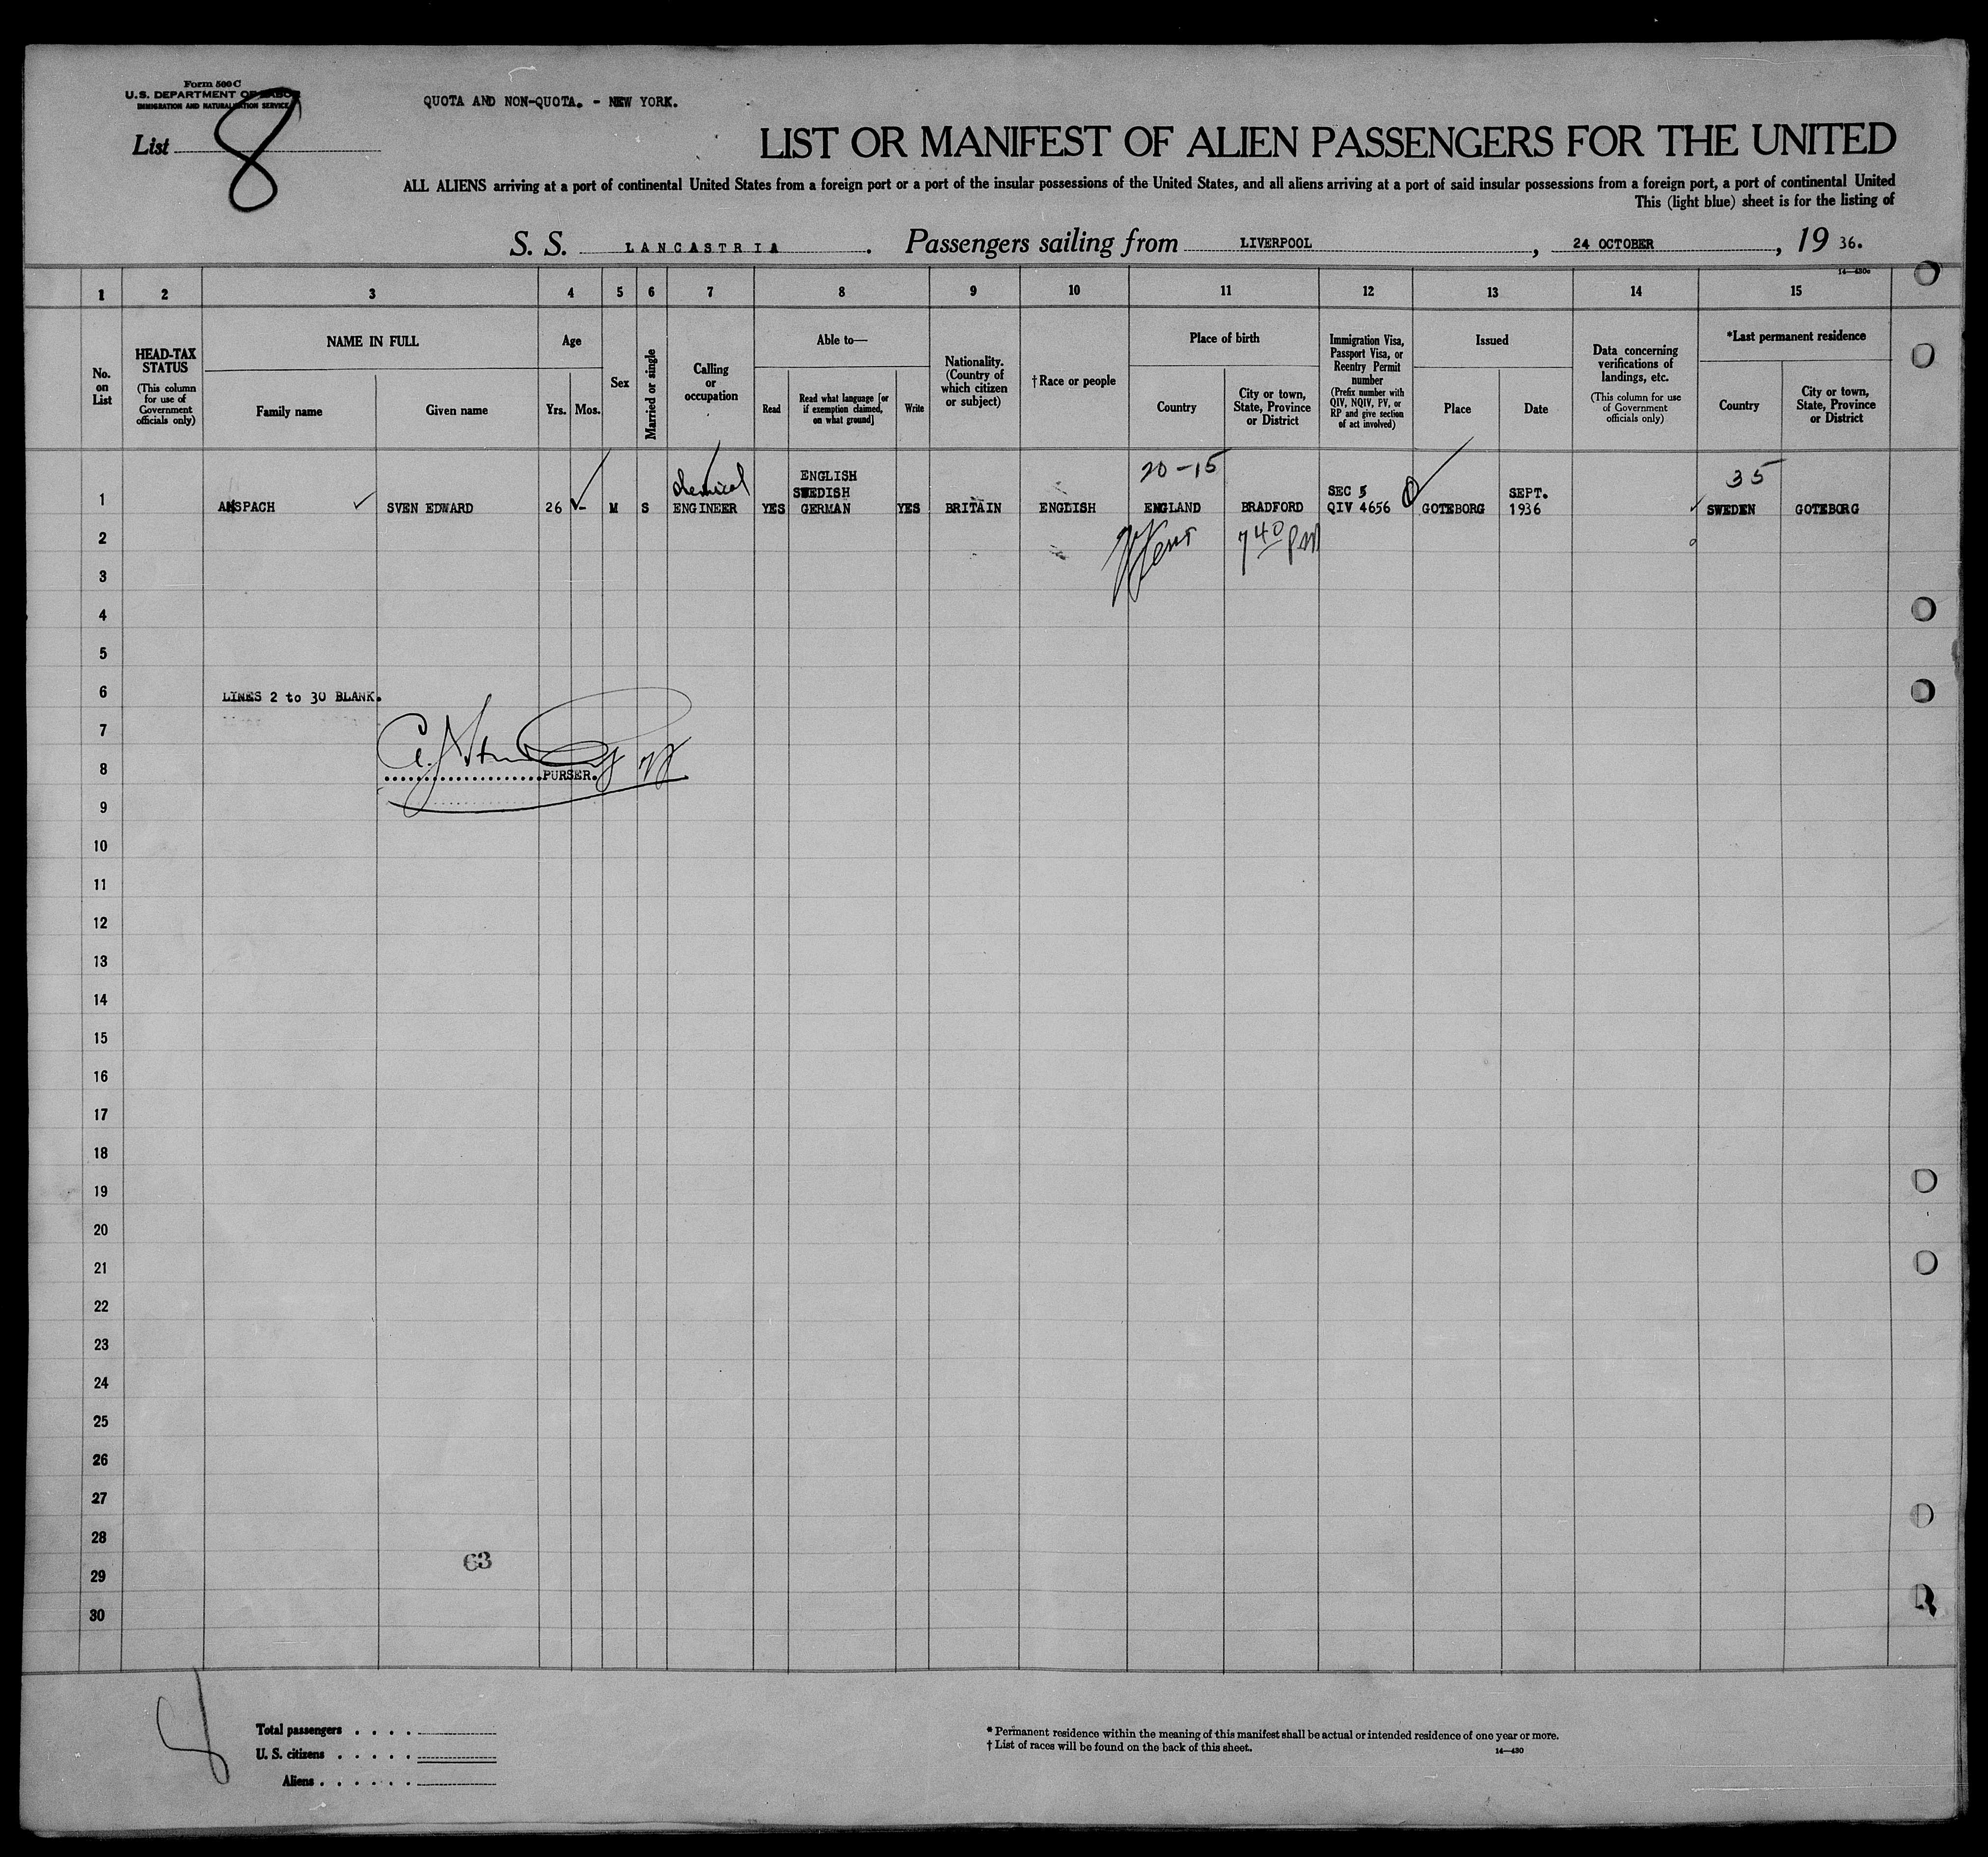 Form 500 C
U.S. DEPARTMENT OF LABOR
IMMIGRATION AND NATURALIZATION SERVICE
QUOTA AND NON-QUOTA. - NEW YORK.
List 8
LIST OR MANIFEST OF ALIEN PASSENGERS FOR THE UNITED
ALL ALIENS arriving at a port of continental United States from a foreign port or a port of the insular possessions of the United States, and all aliens arriving at a port of said insular possessions from a foreign port, a port of continental United
This (light blue) sheet is for the listing of
S. S. LANCASTRIA. Passengers sailing from LIVERPOOL, 24 OCTOBER, 19 36.
14—430c
1 2 3 4 5 6 7 8 9 10 11 12 13 14 15
No. on List
HEAD-TAX STATUS
(This column for use of Government officials only)
NAME IN FULL
Family name
Given name
Age
Yrs.
Mos.
Sex
Married or single
Calling or occupation
Able to—
Read
Read what language [or if exemption claimed, on what ground]
Write
Nationality. (Country of which citizen or subject)
†Race or people
Place of birth
Country
City or town, State, Province or District
Immigration Visa, Passport Visa, or Reentry Permit number
(Prefix number with QIV, NQIV, PV, or RP and give section of act involved)
Issued
Place
Date
Data concerning verifications of landings, etc.
(This column for use of Government officials only)
*Last permanent residence
Country
City or town, State, Province or District
20-15
35
chemical
ENGLISH
SWEDISH
SEC 5
SEPT.
1 ANSPACH SVEN EDWARD 26 - M S ENGINEER YES GERMAN YES BRITAIN ENGLISH ENGLAND BRADFORD QIV 4656 GOTEBORG 1936 SWEDEN GOTEBORG
2 7 40 pm
3
4
5
6 LINES 2 to 30 BLANK.
7
8 PURSER.
9
10
11
12
13
14
15
16
17
18
19
20
21
22
23
24
25
26
27
28
63
29
30
Total passengers . . . .
U. S. citizens . . . . .
Aliens . . . . . .
* Permanent residence within the meaning of this manifest shall be actual or intended residence of one year or more.
† List of races will be found on the back of this sheet.
14—430